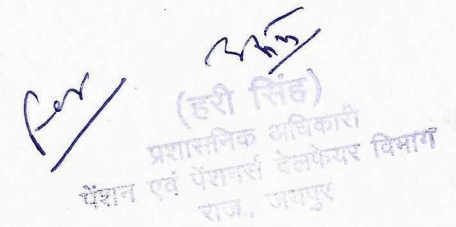 (हरी सिंह)
प्रशासनिक अधिकारी
पेंशन एवं पेंशनर्स वेलफेयर विभाग
राज., जयपुर